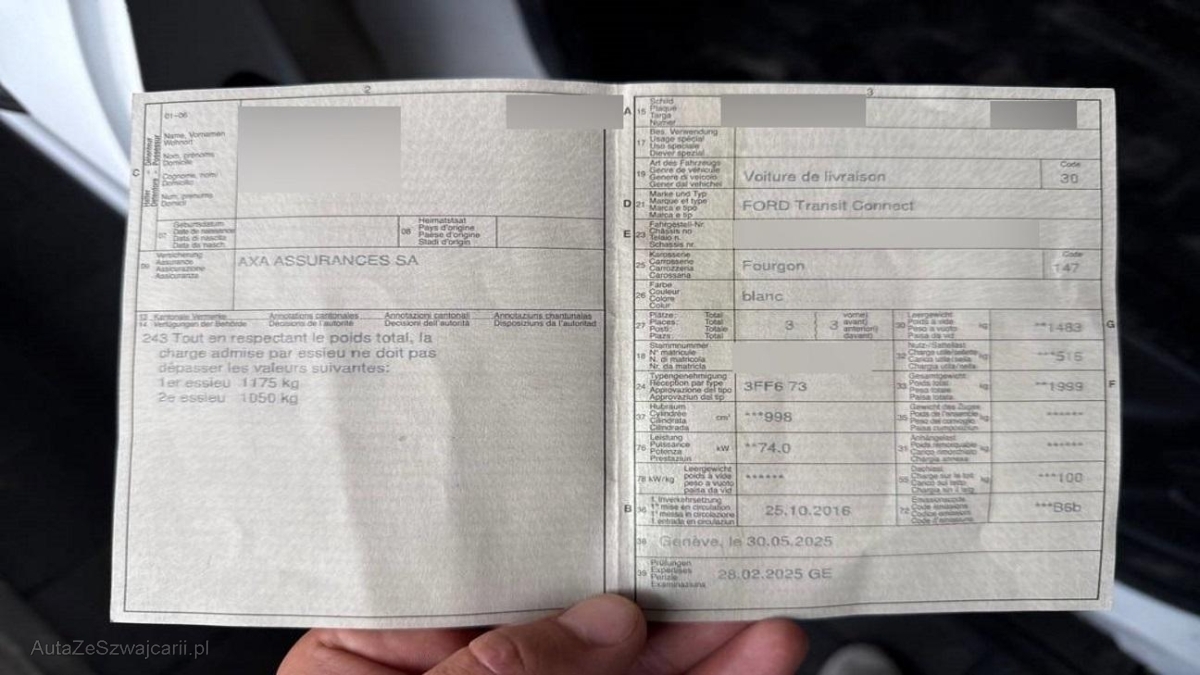 2
01–06
Name, Vornamen
Wohnort
Nom, prénoms
Domicile
Cognome, nomi
Domicilio
Num, prenums
Domicil
C
07
Geburtsdatum
Date de naissance
Data di nascita
Data da nasch.
08
Heimatstaat
Pays d'origine
Paese d'origine
Stadi d'origin
09
Versicherung
Assurance
Assicurazione
Assicuranza
AXA ASSURANCES SA
13 Kantonale Vermerke Annotations cantonales Annotazioni cantonali Annotaziuns chantunalas
14 Verfügungen der Behörde Décisions de l'autorité Decisioni dell'autorità Disposiziuns da l'autoritad
243 Tout en respectant le poids total, la
charge admise par essieu ne doit pas
dépasser les valeurs suivantes:
1er essieu 1175 kg
2e essieu 1050 kg
3
A 15
Schild
Plaque
Targa
Numer
17
Bes. Verwendung
Usage spécial
Uso speciale
Diever spezial
19
Art des Fahrzeugs
Genre de véhicule
Genere di veicolo
Gener dal vehichel
Voiture de livraison
Code
30
D 21
Marke und Typ
Marque et type
Marca e tipo
Marca e tip
FORD Transit Connect
E 23
Fahrgestell-Nr.
Châssis no
Telaio n.
Schassis nr.
25
Karosserie
Carrosserie
Carrozzeria
Carossaria
Fourgon
Code
147
26
Farbe
Couleur
Colore
Colur
blanc
27
Plätze: Total
Places: Total
Posti: Totale
Plazs: Total
3 { 3
vorne)
avant)
anteriori)
davant)
30
Leergewicht
Poids à vide
Peso a vuoto
Paisa da vid
kg
**1483
G
18
Stammnummer
N° matricule
N. di matricola
Nr. da matricla
32
Nutz-/Sattellast
Charge utile/sellette
Carico utile/sella
kg
***516
24
Typengenehmigung
Réception par type
Approvazione del tipo
Approvaziun dal tip
3FF6 73
33
Gesamtgewicht
Poids total
Peso totale
Paisa totala
kg
**1999
F
37
Hubraum
Cylindrée
Cilindrata
Cilindrada
cm³
***998
35
Gewicht des Zuges
Poids de l'ensemble
Peso del convoglio
Paisa cumposiziun
kg
******
76
Leistung
Puissance
Potenza
Prestaziun
kW
**74.0
31
Anhängelast
Poids remorquable
Carico rimorchiato
Chargia annexa
kg
******
78 kW/kg
Leergewicht
poids à vide
peso a vuoto
paisa da vid
******
55
Dachlast
Charge sur le toit
Carico sul tetto
Chargia sin il tetg
kg
***100
B 36
1. Inverkehrsetzung
1re mise en circulation
1a messa in circolazione
1. entrada en circulaziun
25.10.2016
72
Emissionscode
Code émissions
Codice emissioni
Code d'emissiuns
***B6b
38
Genève, le 30.05.2025
39
Prüfungen
Expertises
Perizie
Examinaziuns
28.02.2025 GE
AutaZeSzwajcarii.pl